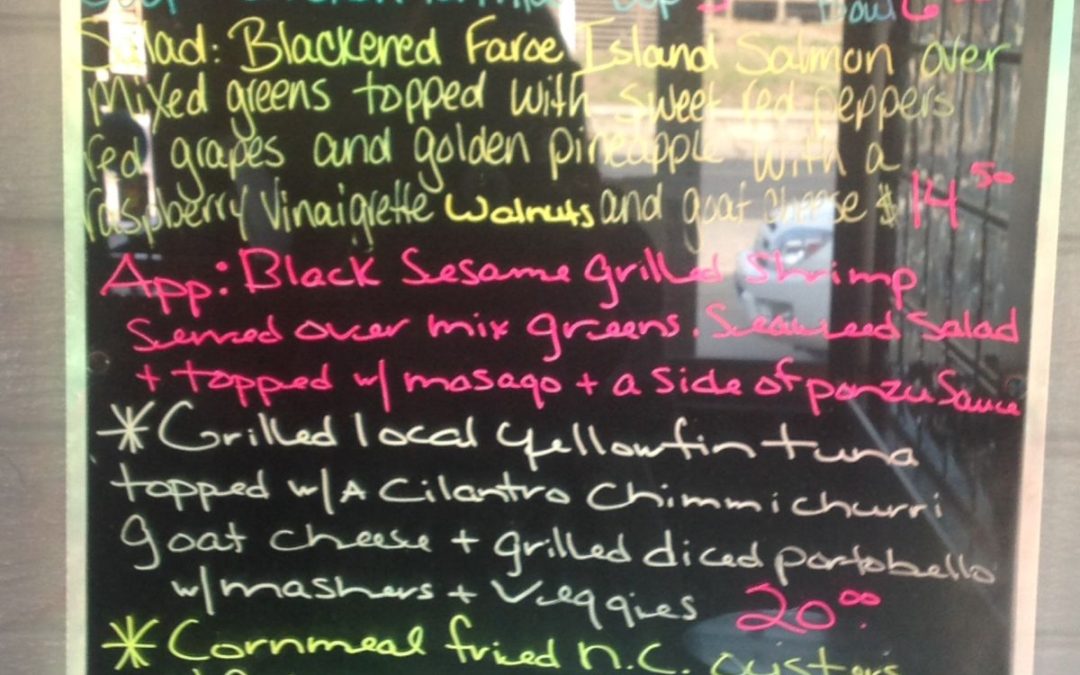 Cup 5 Bowl 6
Salad: Blackened Faroe Island Salmon over
mixed greens topped with sweet red peppers
red grapes and golden pineapple with a
raspberry Vinaigrette Walnuts and goat cheese $14.50
App: Black Sesame grilled Shrimp
Served over mix greens. Seaweed Salad
+ topped w/ masago + a side of ponzu Sauce
*Grilled local yellowfin tuna
topped w/ A Cilantro Chimmichurri
goat cheese + grilled diced portobello
w/ mashers + Veggies 20.00
*Cornmeal fried N.C. oysters